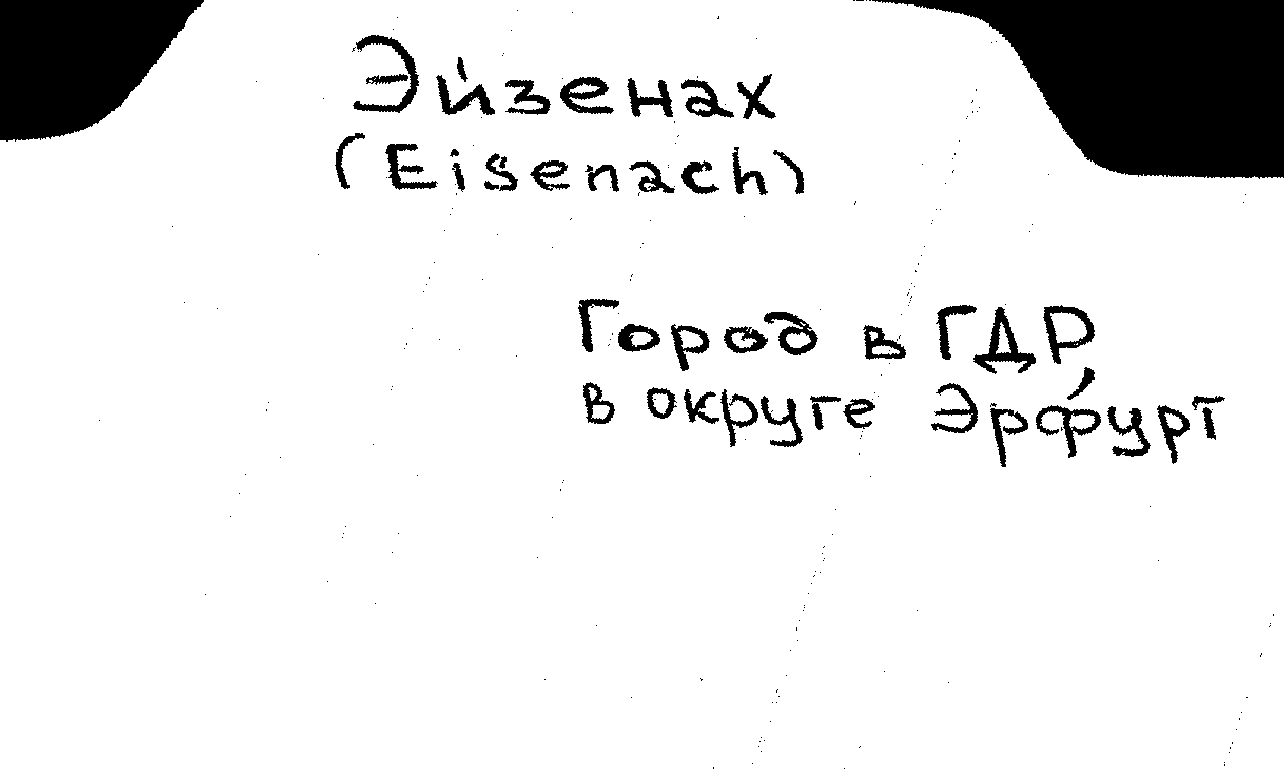 Эйзенах
(Eisenach)
Город в ГДР
в округе Эрфурт